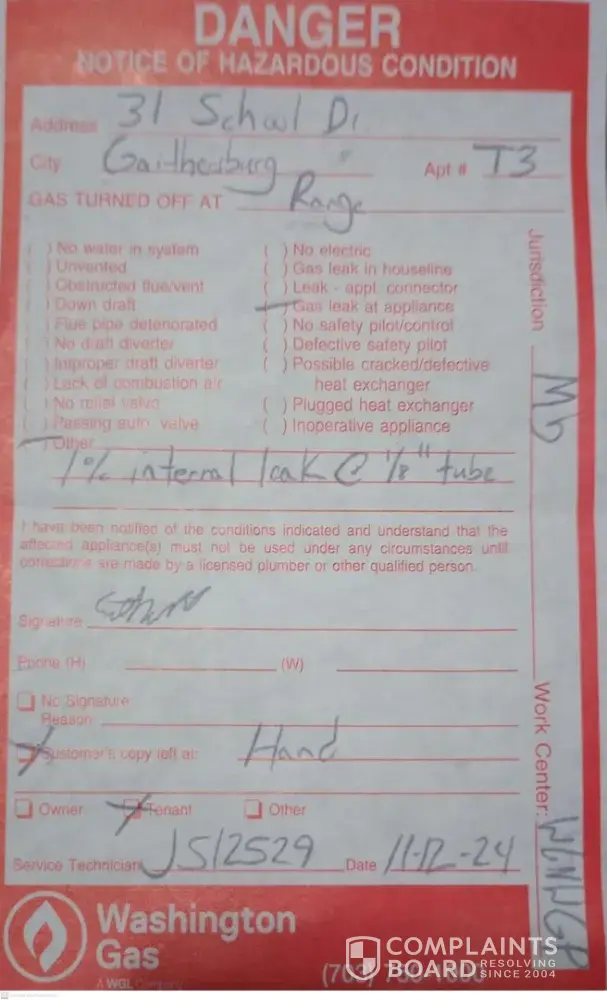 DANGER
NOTICE OF HAZARDOUS CONDITION
Address 31 School Dr
City Gaithersburg Apt # T3
GAS TURNED OFF AT Range
( ) No water in system
( ) Unvented
( ) Obstructed flue/vent
( ) Down draft
( ) Flue pipe deteriorated
( ) No draft diverter
( ) Improper draft diverter
( ) Lack of combustion air
( ) No relief valve
( ) Passing auto. valve
( ) Other
( ) No electric
( ) Gas leak in houseline
( ) Leak - appl. connector
( ) Gas leak at appliance
( ) No safety pilot/control
( ) Defective safety pilot
( ) Possible cracked/defective
heat exchanger
( ) Plugged heat exchanger
( ) Inoperative appliance
1% internal leak @ 1/8" tube
I have been notified of the conditions indicated and understand that the
affected appliance(s) must not be used under any circumstances until
corrections are made by a licensed plumber or other qualified person.
Signature
Phone (H) (W)
No Signature
Reason
Customer's copy left at: Hand
Owner Tenant Other
Service Technician JS12529 Date 11-12-24
Jurisdiction MD
Work Center:
Washington
Gas
A WGL Company
COMPLAINTS
BOARD RESOLVING
SINCE 2004